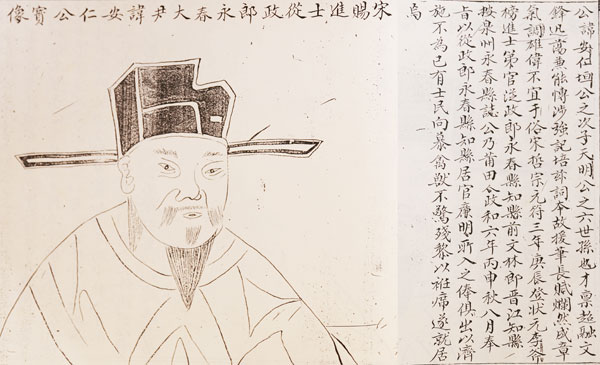 宋賜進士從政郎永春大尹諱安仁公寶像
公諱安仁公之次子天明公之六世孫也才稟超融文
鋒迅蕩兼能博涉強記培詠詞本故援筆長賦爛然成章
氣調雄偉不宜于俗宋哲宗元符三年庚辰登狀元李釜
榜進士第官從政郎永春縣知縣前文林郎晋江知縣
按泉州永春縣誌公乃莆田人政和六年丙申秋八月奉
旨以從政郎永春縣知縣居官廉明所入之俸俱出以濟
施不為已有士民向慕禽獸不驚殘黎以袵席遂就居
焉